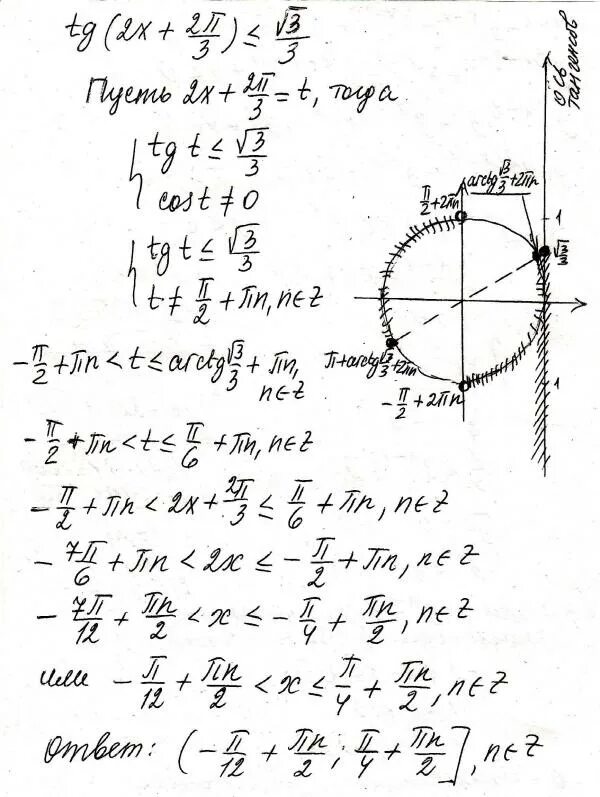 tg(2x + 2π/3) ≤ √3/3
Пусть 2x + 2π/3 = t, тогда
tg t ≤ √3/3
cos t ≠ 0
tg t ≤ √3/3
t ≠ π/2 + πn, n∈Z
-π/2 + πn < t ≤ arctg √3/3 + πn,
n∈Z
-π/2 + πn < t ≤ π/6 + πn, n∈Z
-π/2 + πn < 2x + 2π/3 ≤ π/6 + πn, n∈Z
-7π/6 + πn < 2x ≤ -π/2 + πn, n∈Z
-7π/12 + πn/2 < x ≤ -π/4 + πn/2, n∈Z
или -π/12 + πn/2 < x ≤ π/4 + πn/2, n∈Z
Ответ: (-π/12 + πn/2; π/4 + πn/2], n∈Z
ось
тангенсов
π/2 + 2πn
arctg √3/3 + 2πn
1
√3/3
π + arctg √3/3 + 2πn
-π/2 + 2πn
1